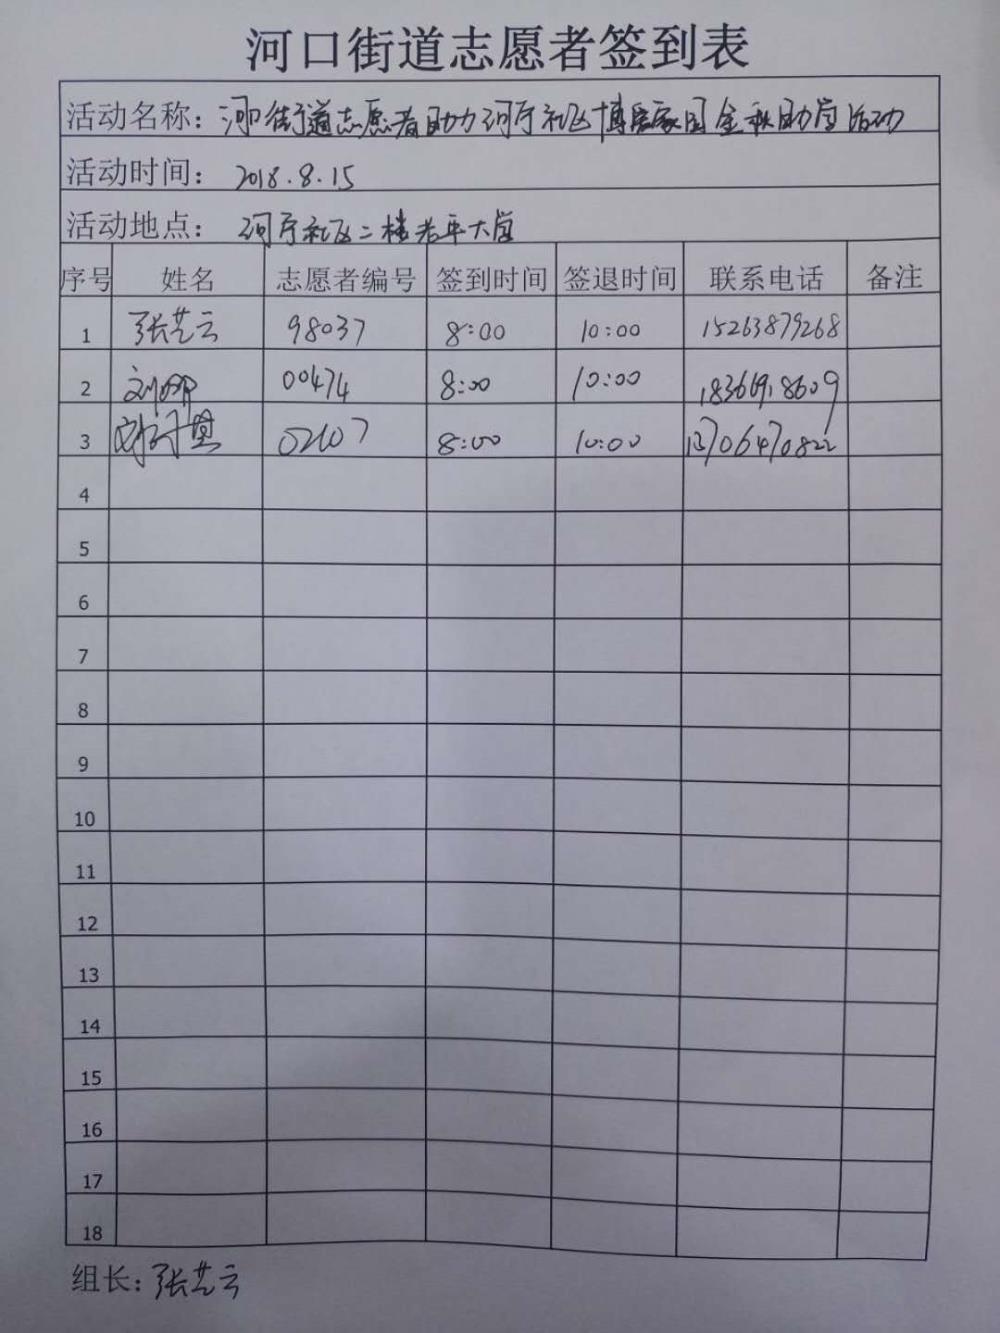 河口街道志愿者签到表
活动名称：河口街道志愿者助力河庁社区博爱家园金秋助学活动
活动时间：2018.8.15
活动地点：河庁社区二楼老年大学
序号 姓名 志愿者编号 签到时间 签退时间 联系电话 备注
1 张艺云 98037 8:00 10:00 15263879268
2 刘娜 00474 8:00 10:00 18366918609
3 02107 8:00 10:00 13706470822
4
5
6
7
8
9
10
11
12
13
14
15
16
17
18
组长：张艺云